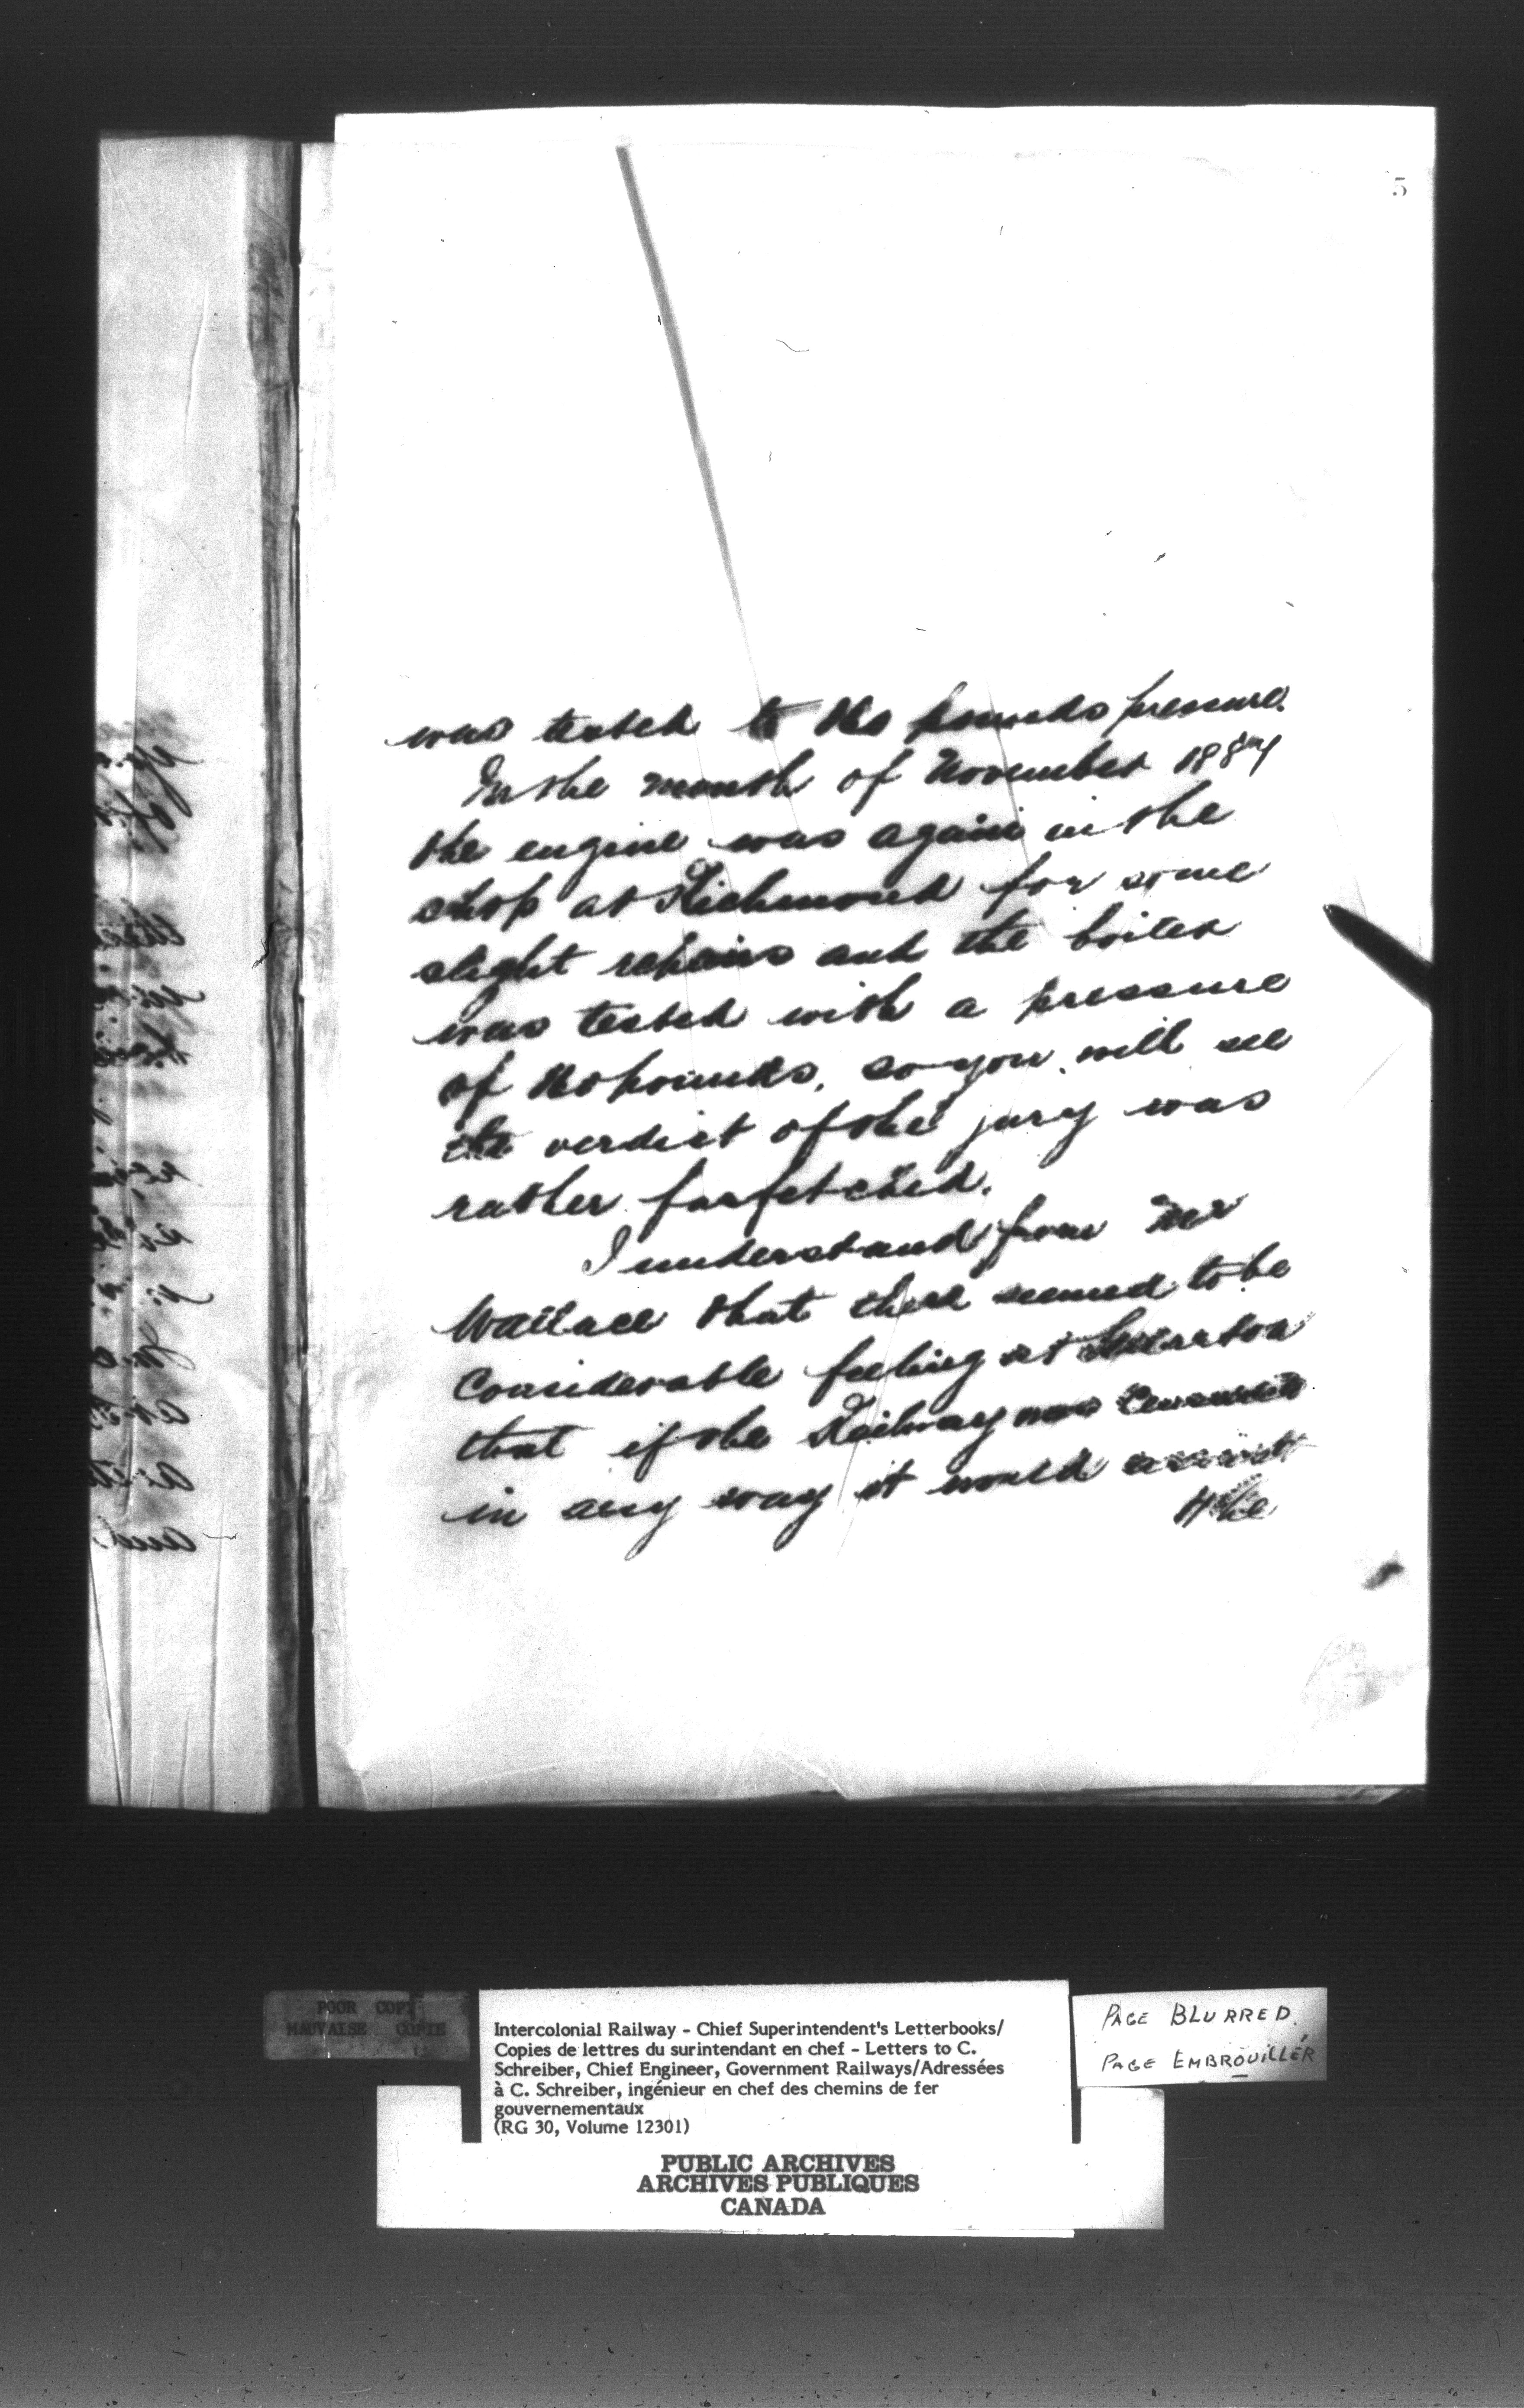 5
was tested to 140 pounds pressure.
In the month of November 1887
the engine was again in the
shop at Richmond for some
slight repairs and the boiler
was tested with a pressure
of 140 pounds. so you will see
the verdict of the jury was
rather farfetched.
I understand from Mr
Wallace that there seemed to be
Considerable feeling at
that if the Railway was Censured
in any way it would assist
the
POOR COPY
MAUVAISE COPIE
Intercolonial Railway - Chief Superintendent's Letterbooks/
Copies de lettres du surintendant en chef - Letters to C.
Schreiber, Chief Engineer, Government Railways/Adressées
à C. Schreiber, ingénieur en chef des chemins de fer
gouvernementaux
(RG 30, Volume 12301)
PAGE BLURRED.
PAGE EMBROUILLÉR
PUBLIC ARCHIVES
ARCHIVES PUBLIQUES
CANADA